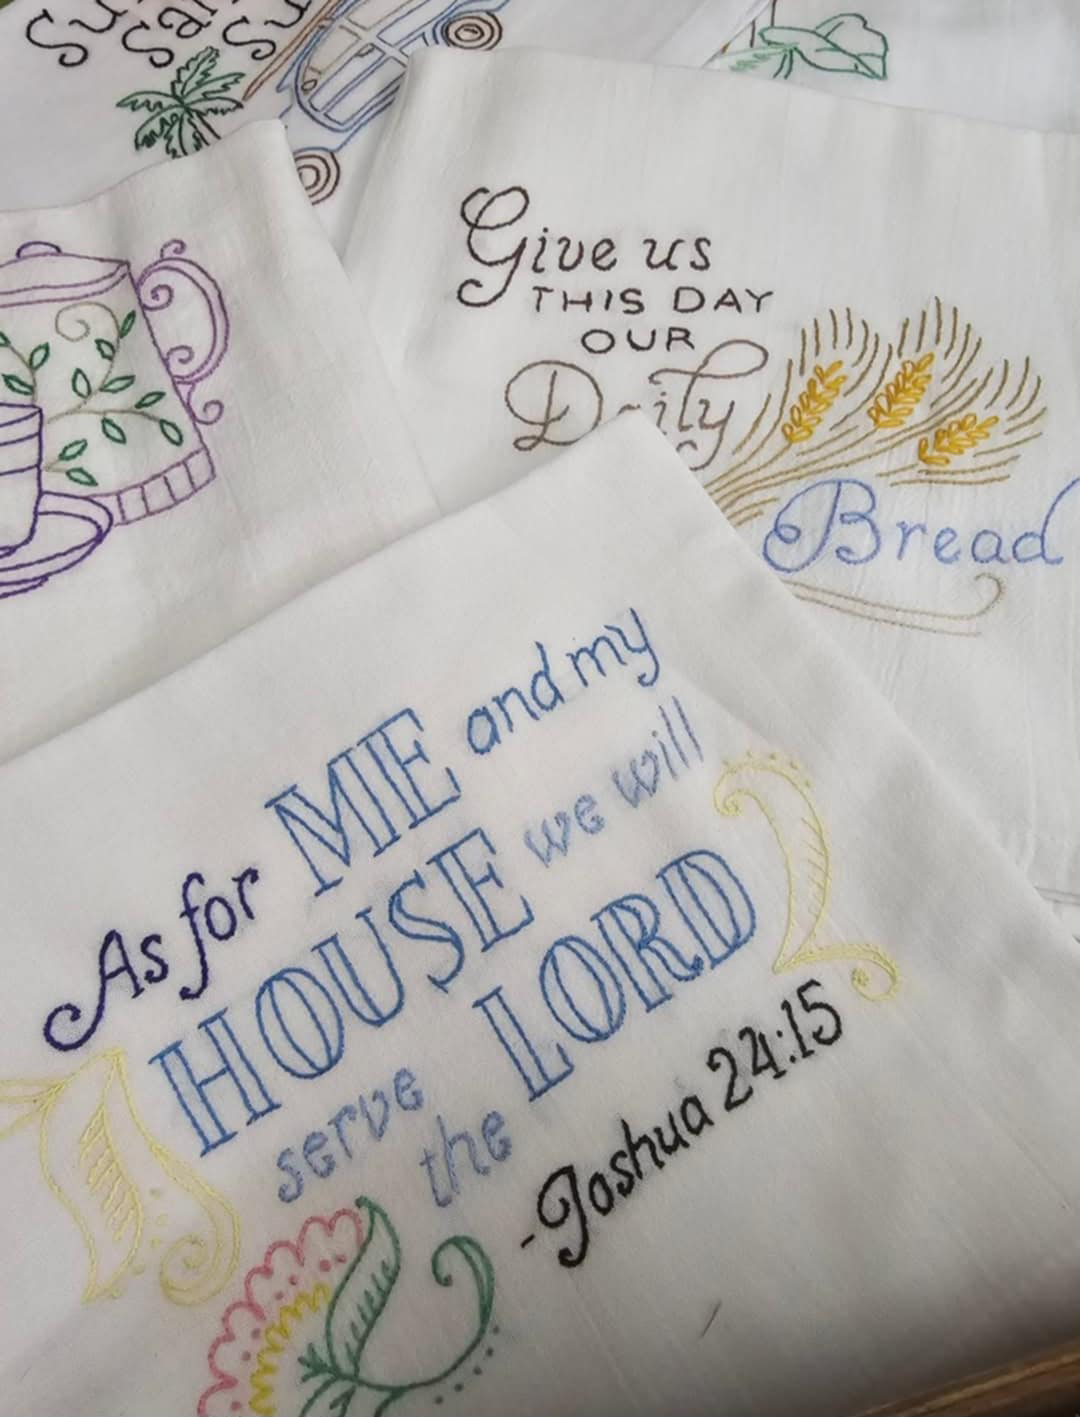 Give us
THIS DAY
OUR
Daily
Bread
As for ME and my
HOUSE we will
serve
the LORD
-Joshua 24:15